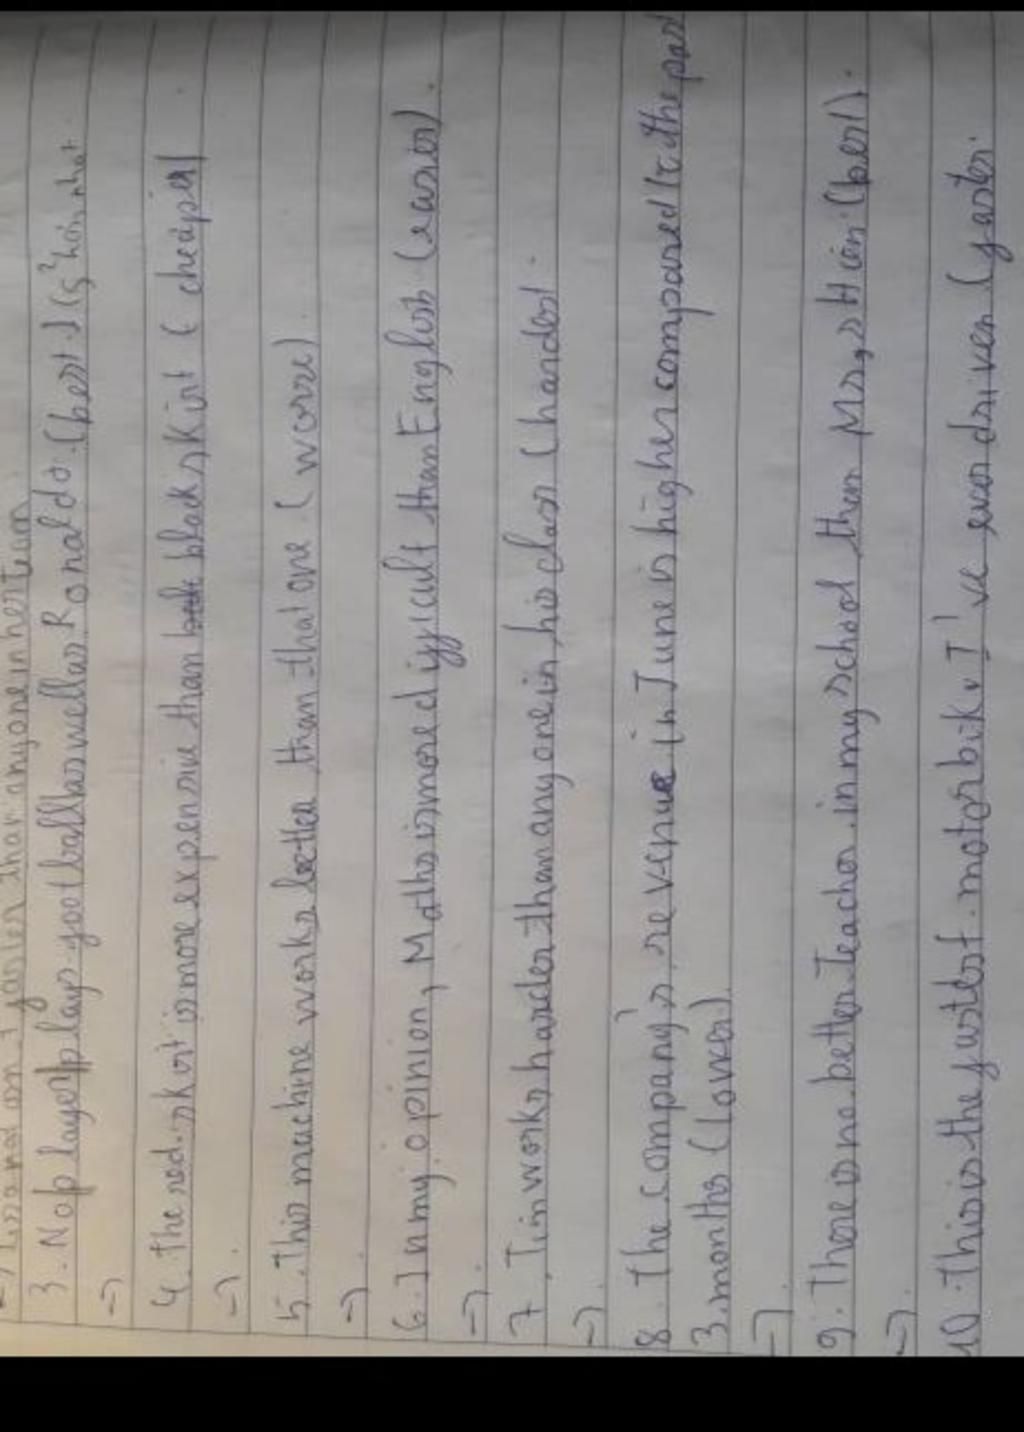 than anyone in her team
3. No player plays football as well as Ronaldo. (best)
→
4. The red skirt is more expensive than black skirt (cheaper)
→.
5. This machine works better than that one. (worse)
→.
6. In my opinion, Maths is more difficult than English (easier).
→.
7. Tin works harder than anyone in his class (hardest.
→.
8. The company's revenue in June is higher compared to the past
3 months (lower).
→.
9. There is no better Teacher in my school than Mrs Hiên. (best).
→.
10. This is the fastest motorbike I've ever driven (faster.